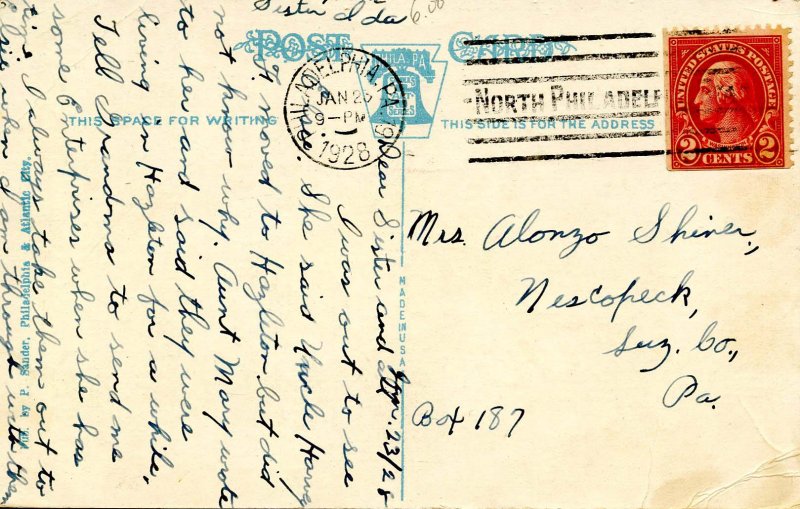 Sister Ida
6.00
POST CARD
PHILA. PA.
PHILADELPHIA, PA.
JAN 23
9-PM
1928
NORTH PHILADEL
UNITED STATES POSTAGE
2 CENTS 2
THIS SPACE FOR WRITING
THIS SIDE IS FOR THE ADDRESS
MADE IN USA
Pub. by P. Sander, Philadelphia & Atlantic City.
Jan. 23/28
Dear Sister and all
I was out to see
She said Uncle Harry
& moved to Hazleton but did
not know why. Aunt Mary wrote
to her and said they were
living in Hazleton for a while.
Tell Grandma to send me
some Enterprises when she has
I always take them out to
when I am through with them
Mrs. Alonzo Shiner,
Nescopeck,
Luz. Co.,
Pa.
Box 187